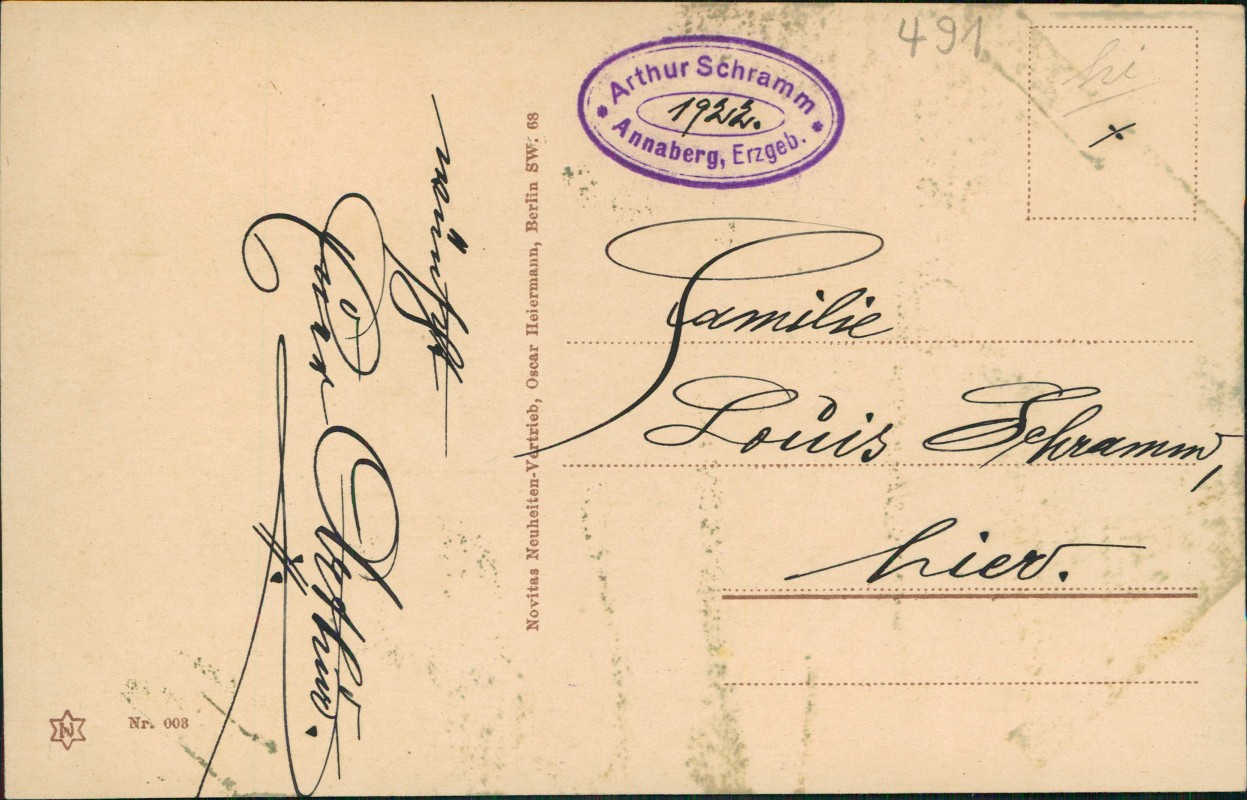 491
hi
Arthur Schramm
1922.
Annaberg, Erzgeb.
Familie
Louis Schramm,
hier.
wünscht
Novitas Neuheiten-Vertrieb, Oscar Heiermann, Berlin SW. 68
Nr. 003